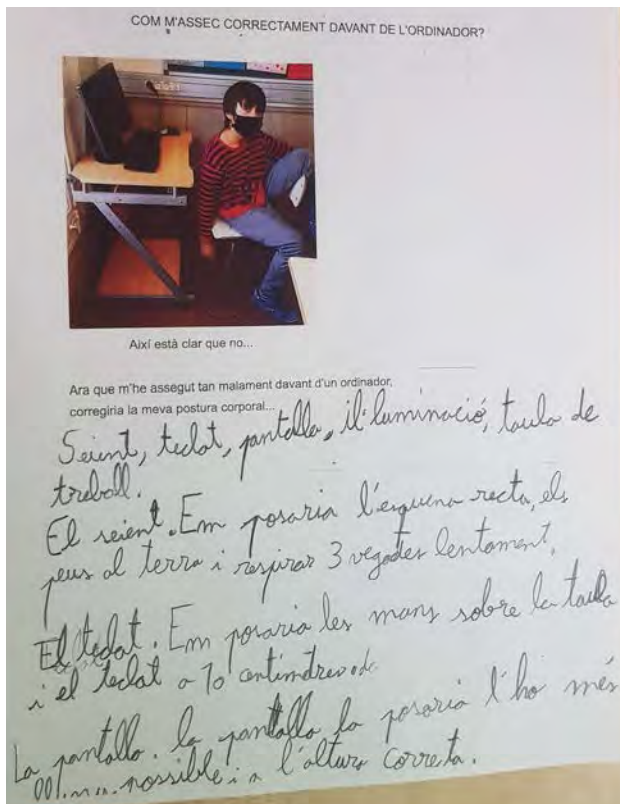 COM M'ASSEC CORRECTAMENT DAVANT DE L'ORDINADOR?
Així està clar que no...
Ara que m'he assegut tan malament davant d'un ordinador,
corregiria la meva postura corporal...
Seient, teclat, pantalla, il·luminació, taula de
treball.
El seient. Em posaria l'esquena recta, els
peus al terra i respirar 3 vegades lentament.
El teclat. Em posaria les mans sobre la taula
i el teclat a 10 centímetres
La pantalla. la pantalla la posaria l'ho més
possible i a l'altura correcta.